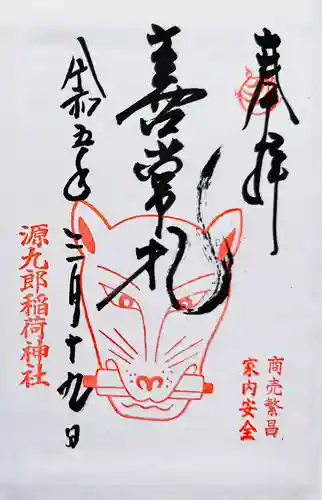 奉拝
商売繁昌
家内安全
令和五年三月十九日
源九郎稲荷神社